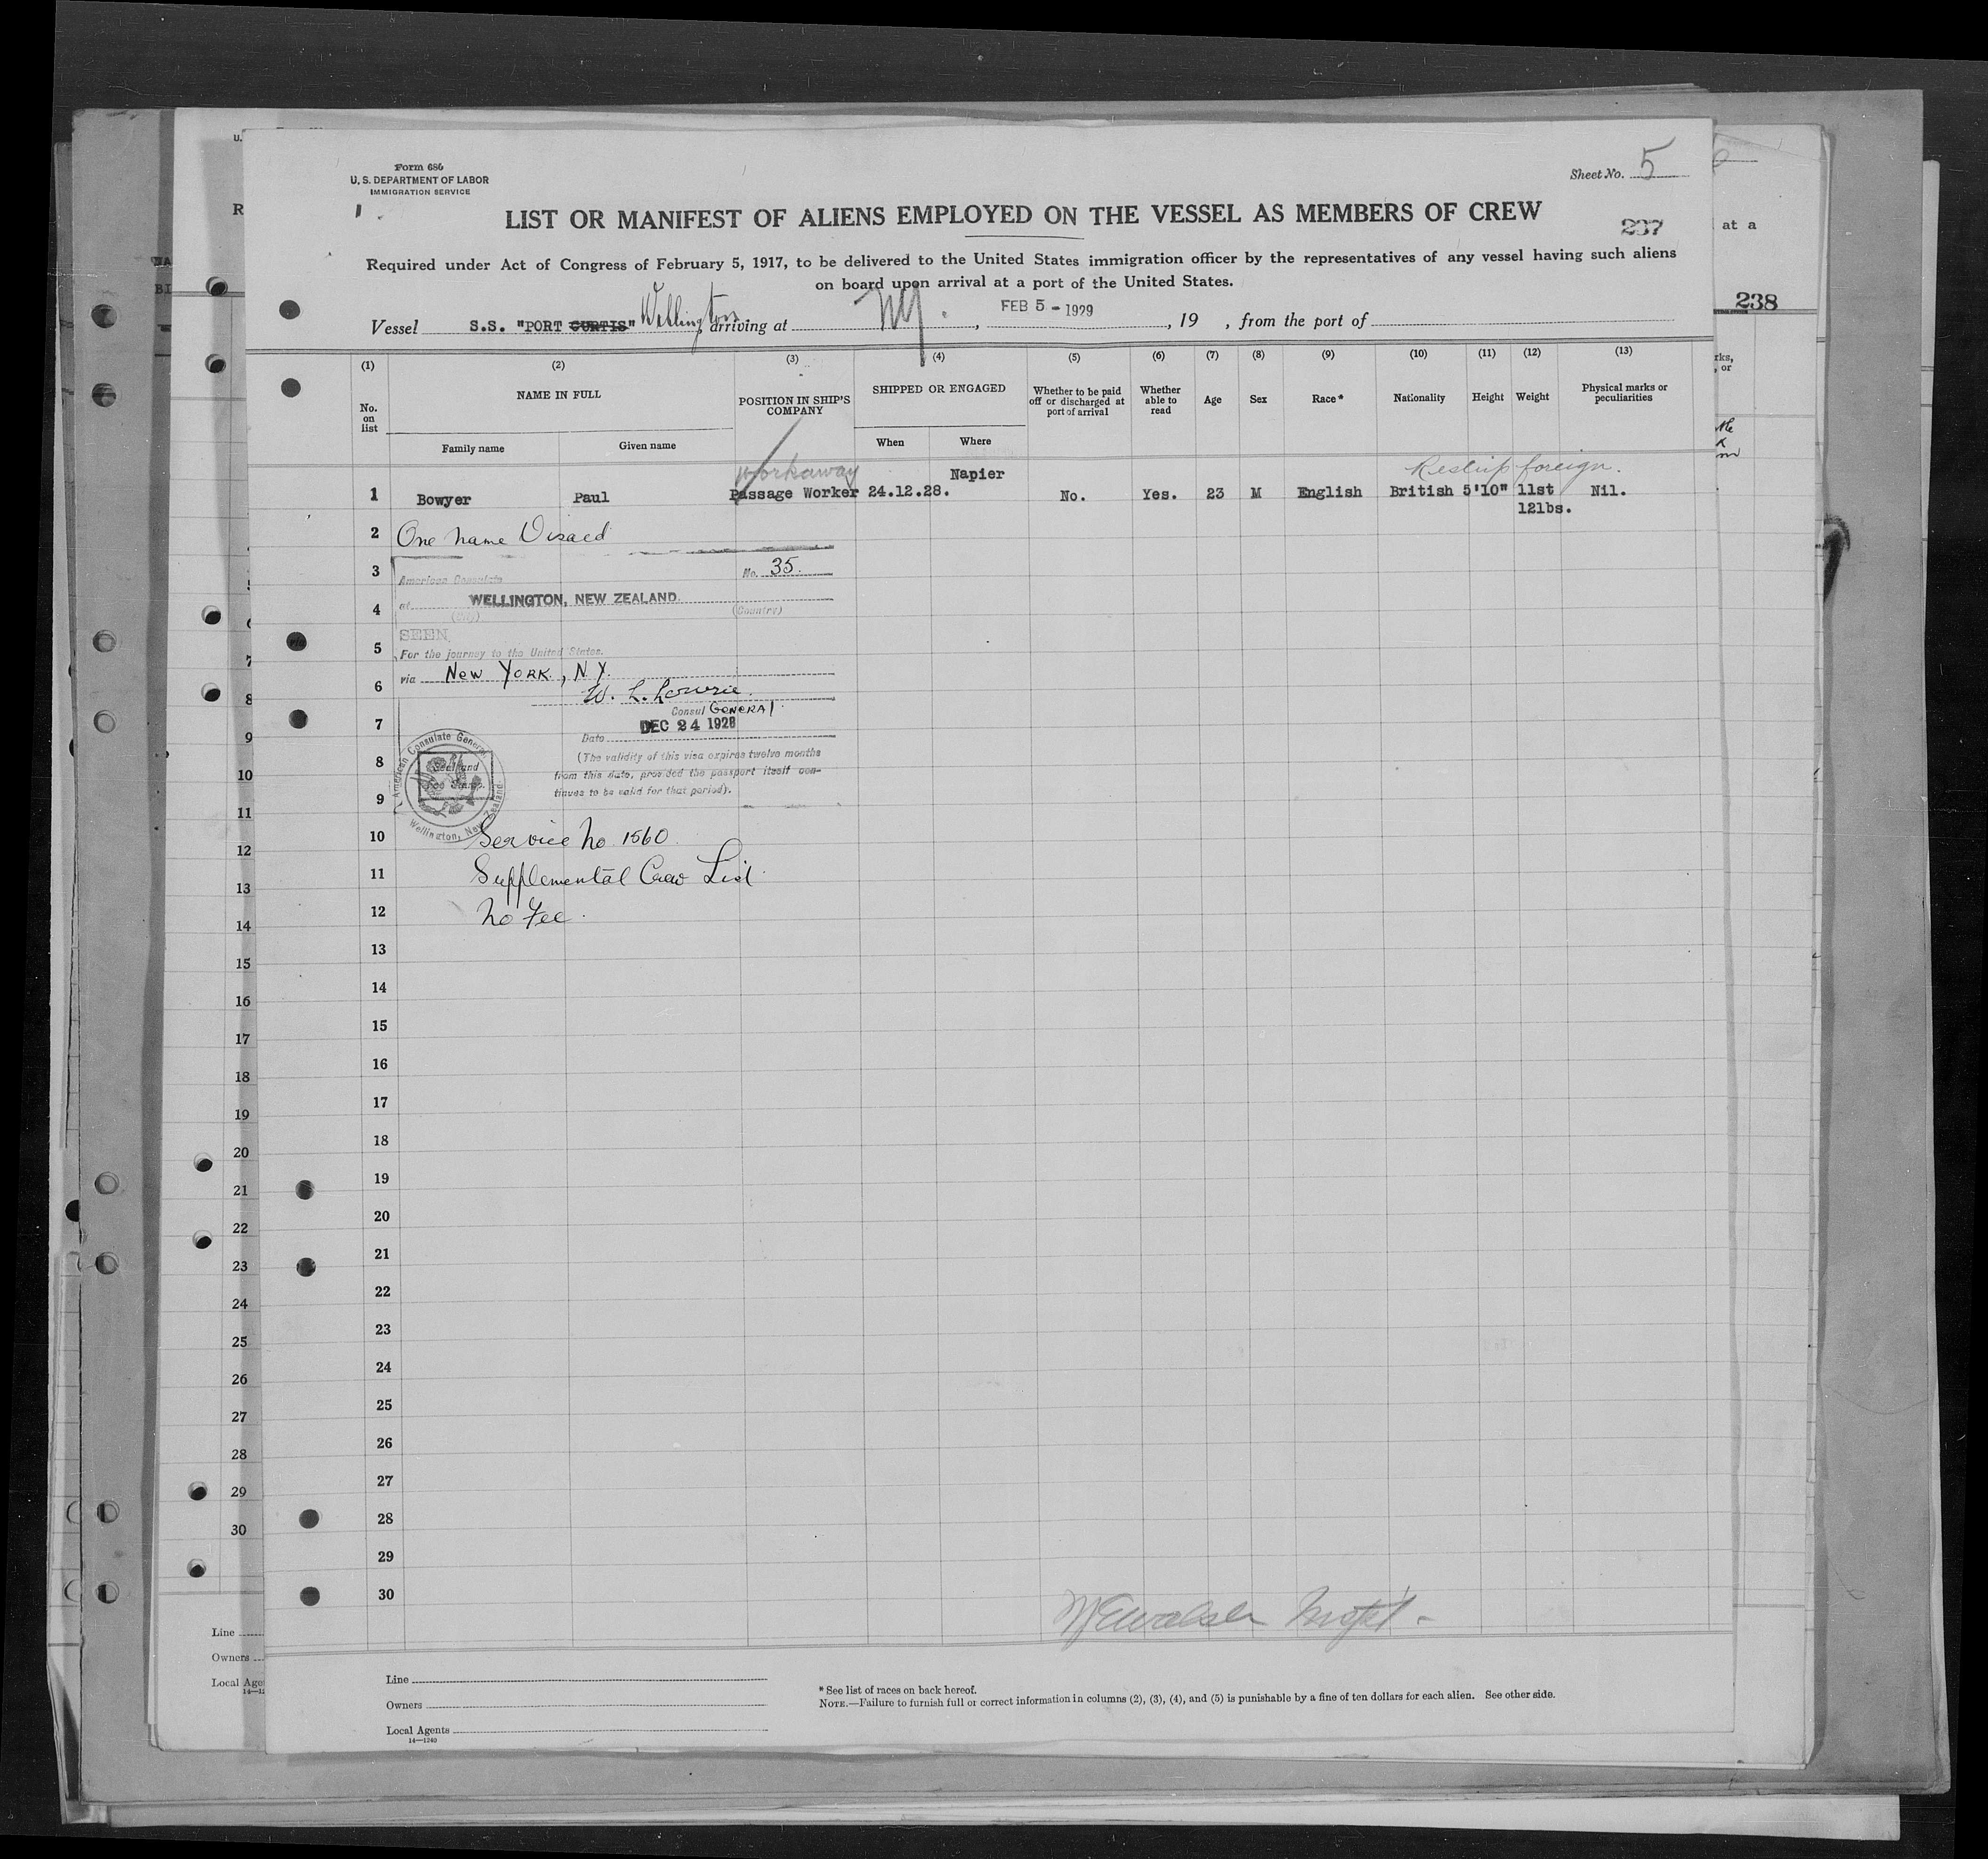 Form 686
U. S. DEPARTMENT OF LABOR
IMMIGRATION SERVICE
Sheet No. 5
LIST OR MANIFEST OF ALIENS EMPLOYED ON THE VESSEL AS MEMBERS OF CREW
237
Required under Act of Congress of February 5, 1917, to be delivered to the United States immigration officer by the representatives of any vessel having such aliens
on board upon arrival at a port of the United States.
Vessel S.S. "PORT CURTIS" Wellington, arriving at NY., FEB 5 - 1929, 19 , from the port of
at a
238
(1) (2) (3) (4) (5) (6) (7) (8) (9) (10) (11) (12) (13)
No. on list
NAME IN FULL
Family name Given name
POSITION IN SHIP'S COMPANY
SHIPPED OR ENGAGED
When Where
Whether to be paid off or discharged at port of arrival
Whether able to read
Age
Sex
Race*
Nationality
Height
Weight
Physical marks or peculiarities
workaway Napier Reship foreign.
1 Bowyer Paul Passage Worker 24.12.28. No. Yes. 23 M English British 5'10" 11st Nil.
12lbs.
2 One name Visaed
3 American Consulate No. 35.
4 at WELLINGTON, NEW ZEALAND.
(City) (Country)
SEEN
5 For the journey to the United States.
via New York, N.Y.
6 W. L. Lowrie.
Consul General
7 Date DEC 24 1928
8 (The validity of this visa expires twelve months
from this date, provided the passport itself con-
9 tinues to be valid for that period).
American Consulate General
Wellington, New Zealand.
10 Service No 1560
11 Supplemental Crew List
12 No Fee.
13
14
15
16
17
18
19
20
21
22
23
24
25
26
27
28
29
30
Line
Owners
Local Agents
14—1240
* See list of races on back hereof.
NOTE.—Failure to furnish full or correct information in columns (2), (3), (4), and (5) is punishable by a fine of ten dollars for each alien. See other side.